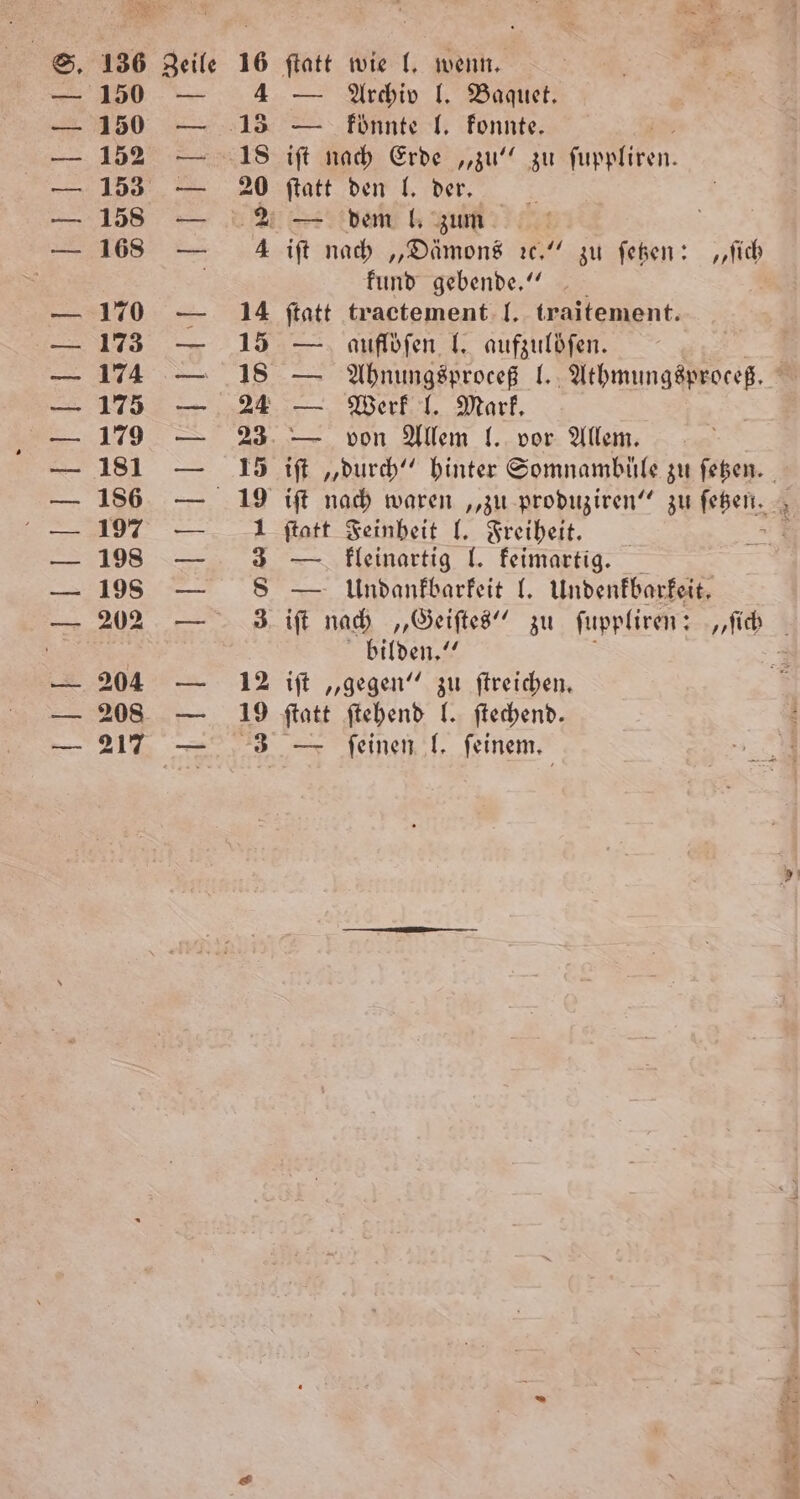 S. 136 Zeile 16 ſtatt wie l. wenn.
— 150 — 4 — Archiv l. Baquet.
— 150 — 13 — könnte l. konnte.
— 152 — 18 iſt nach Erde „zu“ zu ſuppliren.
— 153 — 20 ſtatt den l. der.
— 158 — 2 — dem l. zum
— 168 — 4 iſt nach „Dämons ꝛc.“ zu ſetzen: „ſich
kund gebende.“
— 170 — 14 ſtatt tractement l. traitement.
— 173 — 15 — auflöſen l. aufzulöſen.
— 174 — 18 — Ahnungsproceß l. Athmungsproceß.
— 175 — 24 — Werk l. Mark.
— 179 — 23 — von Allem l. vor Allem.
— 181 — 15 iſt „durch“ hinter Somnambüle zu ſetzen.
— 186 — 19 iſt nach waren „zu produziren“ zu ſetzen.
— 197 — 1 ſtatt Feinheit l. Freiheit.
— 198 — 3 — kleinartig l. keimartig.
— 198 — 8 — Undankbarkeit l. Undenkbarkeit.
— 202 — 3 iſt nach „Geiſtes“ zu ſuppliren: „ſich
bilden.“
— 204 — 12 iſt „gegen“ zu ſtreichen.
— 208 — 19 ſtatt ſtehend l. ſtechend.
— 217 — 3 — ſeinen l. ſeinem.